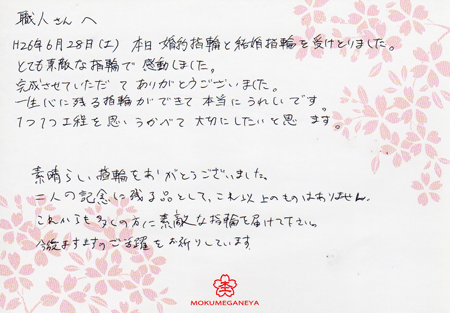 職人さんへ
H26年6月28日(土) 本日 婚約指輪と結婚指輪を受けとりました。
とても素敵な指輪で 感動しました。
完成させていただいて ありがとうございました。
一生心に残る指輪ができて 本当にうれしいです。
1つ1つ工程を思いうかべて 大切にしたいと思 ます。
素晴らしい指輪をありがとうございました。
二人の記念に残る品として、これ以上のものはありません。
これからも多くの方に素敵な指輪を届けて下さい。
今後ますますのご活躍をお祈りしています。
MOKUMEGANEYA